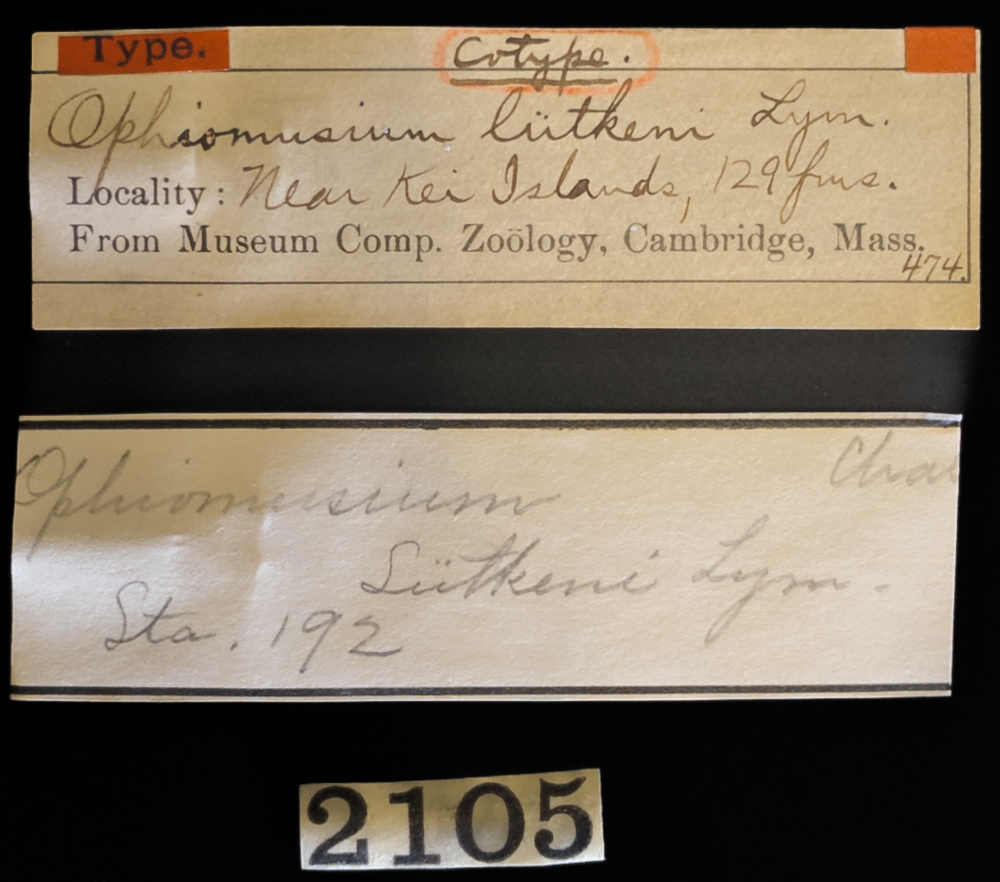 Type. Cotype.
Ophiomusium lütkeni Lym.
Locality: Near Kei Islands, 129 fms.
From Museum Comp. Zoölogy, Cambridge, Mass.
474.
Chal
Ophiomusium
Lütkeni Lym.
Sta. 192
2105